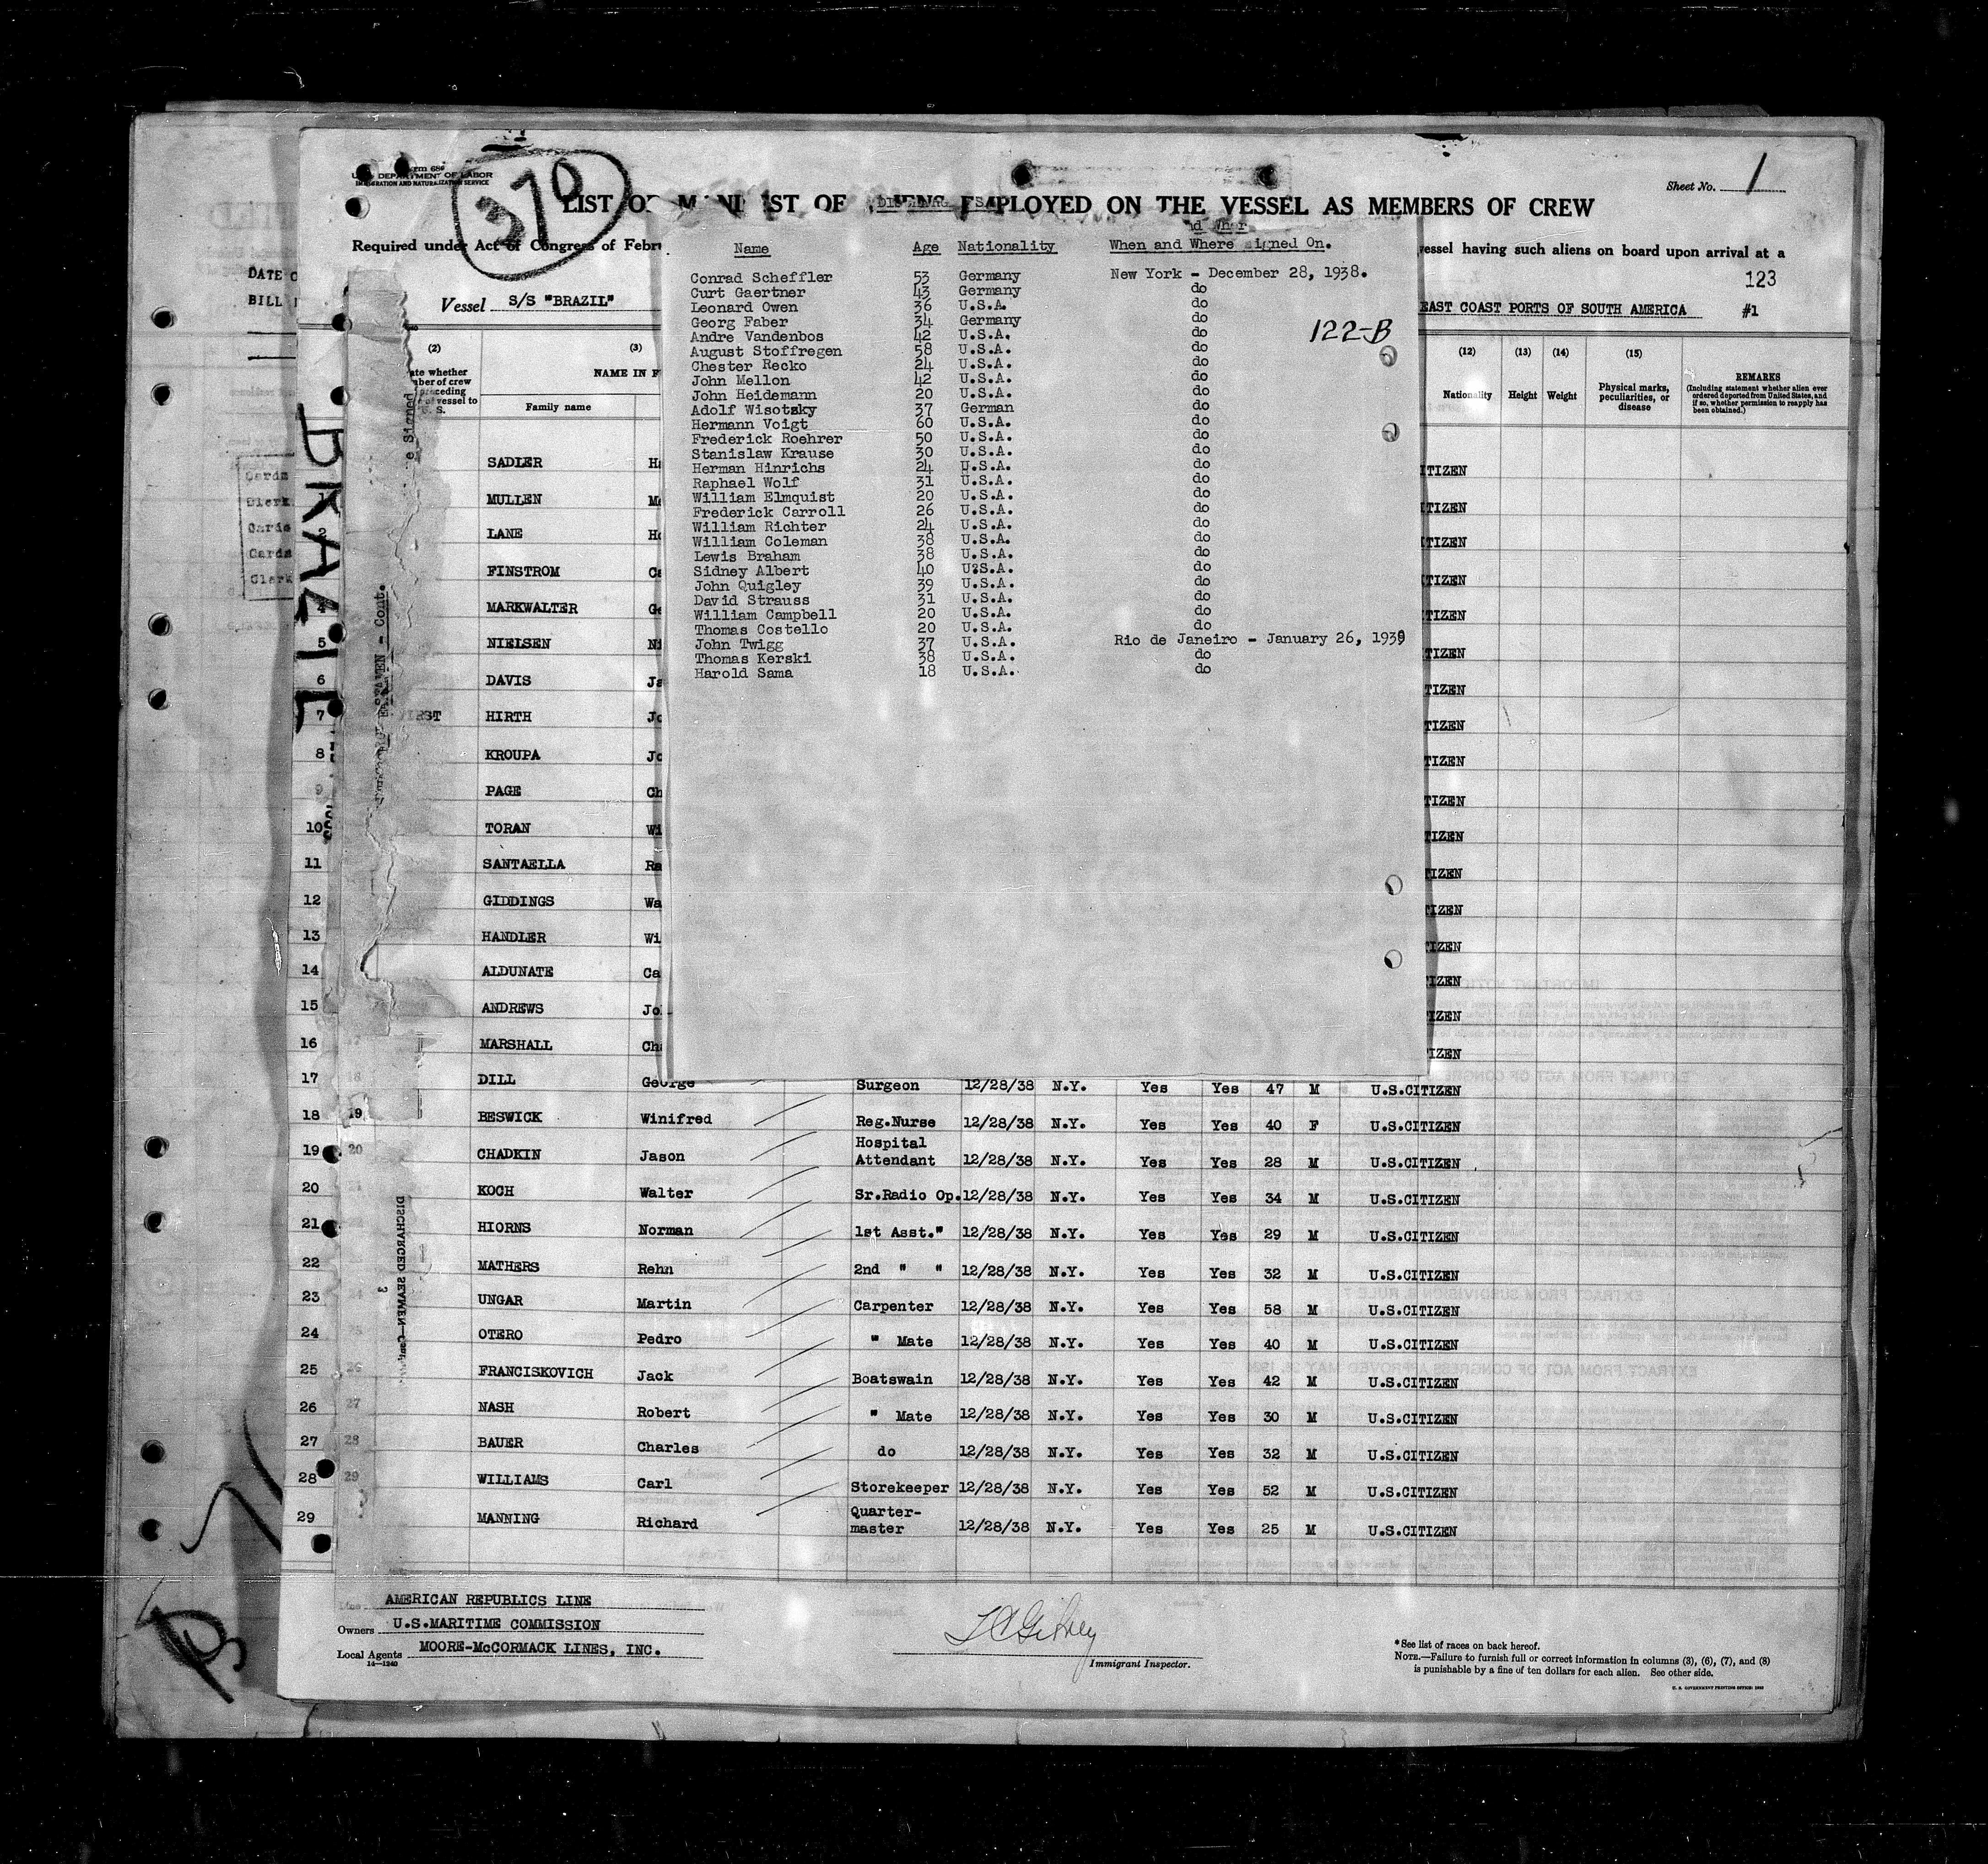 370
U. S. DEPARTMENT OF LABOR
IMMIGRATION AND NATURALIZATION SERVICE
Sheet No. 1
LIST OR MANIFEST OF EMPLOYED ON THE VESSEL AS MEMBERS OF CREW
Required under Act of Congress of Febr essel having such aliens on board upon arrival at a
123
DATE
BILL
Vessel S/S "BRAZIL" EAST COAST PORTS OF SOUTH AMERICA #1
Name Age Nationality When and Where Signed On.
Conrad Scheffler 53 Germany New York - December 28, 1938.
Curt Gaertner 43 Germany do
Leonard Owen 36 U.S.A. do
Georg Faber 34 Germany do
122-B
Andre Vandenbos 42 U.S.A. do
August Stoffregen 58 U.S.A. do
Chester Recko 24 U.S.A. do
John Mellon 42 U.S.A. do
John Heidemann 20 U.S.A. do
Adolf Wisotzky 37 German do
Hermann Voigt 60 U.S.A. do
Frederick Roehrer 50 U.S.A. do
Stanislaw Krause 30 U.S.A. do
Herman Hinrichs 24 U.S.A. do
Raphael Wolf 31 U.S.A. do
William Elmquist 20 U.S.A. do
Frederick Carroll 26 U.S.A. do
William Richter 24 U.S.A. do
William Coleman 38 U.S.A. do
Lewis Braham 38 U.S.A. do
Sidney Albert 40 U?S.A. do
John Quigley 39 U.S.A. do
David Strauss 31 U.S.A. do
William Campbell 20 U.S.A. do
Thomas Costello 20 U.S.A. do
John Twigg 37 U.S.A. Rio de Janeiro - January 26, 1939
Thomas Kerski 38 U.S.A. do
Harold Sama 18 U.S.A. do
(2) (3) (12) (13) (14) (15)
NAME IN F
Family name
Nationality Height Weight Physical marks, peculiarities, or disease
REMARKS
(Including statement whether alien ever ordered deported from United States, and if so, whether permission to reapply has been obtained.)
BRAZIL
Cards
Clerk
Cards
Cards
Clerk
SADLER Ha ITIZEN
1 MULLEN Mo ITIZEN
2 LANE Ho TIZEN
FINSTROM Ca TIZEN
4 MARKWALTER Ge TIZEN
5 NIELSEN Ni TIZEN
6 DAVIS Ja TIZEN
7 HIRTH Jo TIZEN
8 KROUPA Jo TIZEN
9 PAGE Ch TIZEN
10 TORAN Wi TIZEN
11 SANTAELLA Ra TIZEN
12 GIDDINGS Wa TIZEN
13 HANDLER Wi TIZEN
14 ALDUNATE Ca TIZEN
15 ANDREWS Jo TIZEN
16 MARSHALL Cha IZEN
17 DILL George Surgeon 12/28/38 N.Y. Yes Yes 47 M U.S.CITIZEN
18 19 BESWICK Winifred Reg.Nurse 12/28/38 N.Y. Yes Yes 40 F U.S.CITIZEN
19 20 CHADKIN Jason Hospital Attendant 12/28/38 N.Y. Yes Yes 28 M U.S.CITIZEN
20 KOCH Walter Sr.Radio Op. 12/28/38 N.Y. Yes Yes 34 M U.S.CITIZEN
21 HIORNS Norman 1st Asst." 12/28/38 N.Y. Yes Yes 29 M U.S.CITIZEN
22 MATHERS Rehn 2nd " " 12/28/38 N.Y. Yes Yes 32 M U.S.CITIZEN
23 UNGAR Martin Carpenter 12/28/38 N.Y. Yes Yes 58 M U.S.CITIZEN
24 OTERO Pedro " Mate 12/28/38 N.Y. Yes Yes 40 M U.S.CITIZEN
25 26 FRANCISKOVICH Jack Boatswain 12/28/38 N.Y. Yes Yes 42 M U.S.CITIZEN
26 27 NASH Robert " Mate 12/28/38 N.Y. Yes Yes 30 M U.S.CITIZEN
27 28 BAUER Charles do 12/28/38 N.Y. Yes Yes 32 M U.S.CITIZEN
28 29 WILLIAMS Carl Storekeeper 12/28/38 N.Y. Yes Yes 52 M U.S.CITIZEN
29 MANNING Richard Quarter-master 12/28/38 N.Y. Yes Yes 25 M U.S.CITIZEN
DISCHARGED SEAMEN—Cont.
3
AMERICAN REPUBLICS LINE
Owners U.S.MARITIME COMMISSION
Local Agents MOORE-McCORMACK LINES, INC.
14—1240
Immigrant Inspector.
*See list of races on back hereof.
NOTE.—Failure to furnish full or correct information in columns (3), (6), (7), and (8)
is punishable by a fine of ten dollars for each alien. See other side.
U. S. GOVERNMENT PRINTING OFFICE